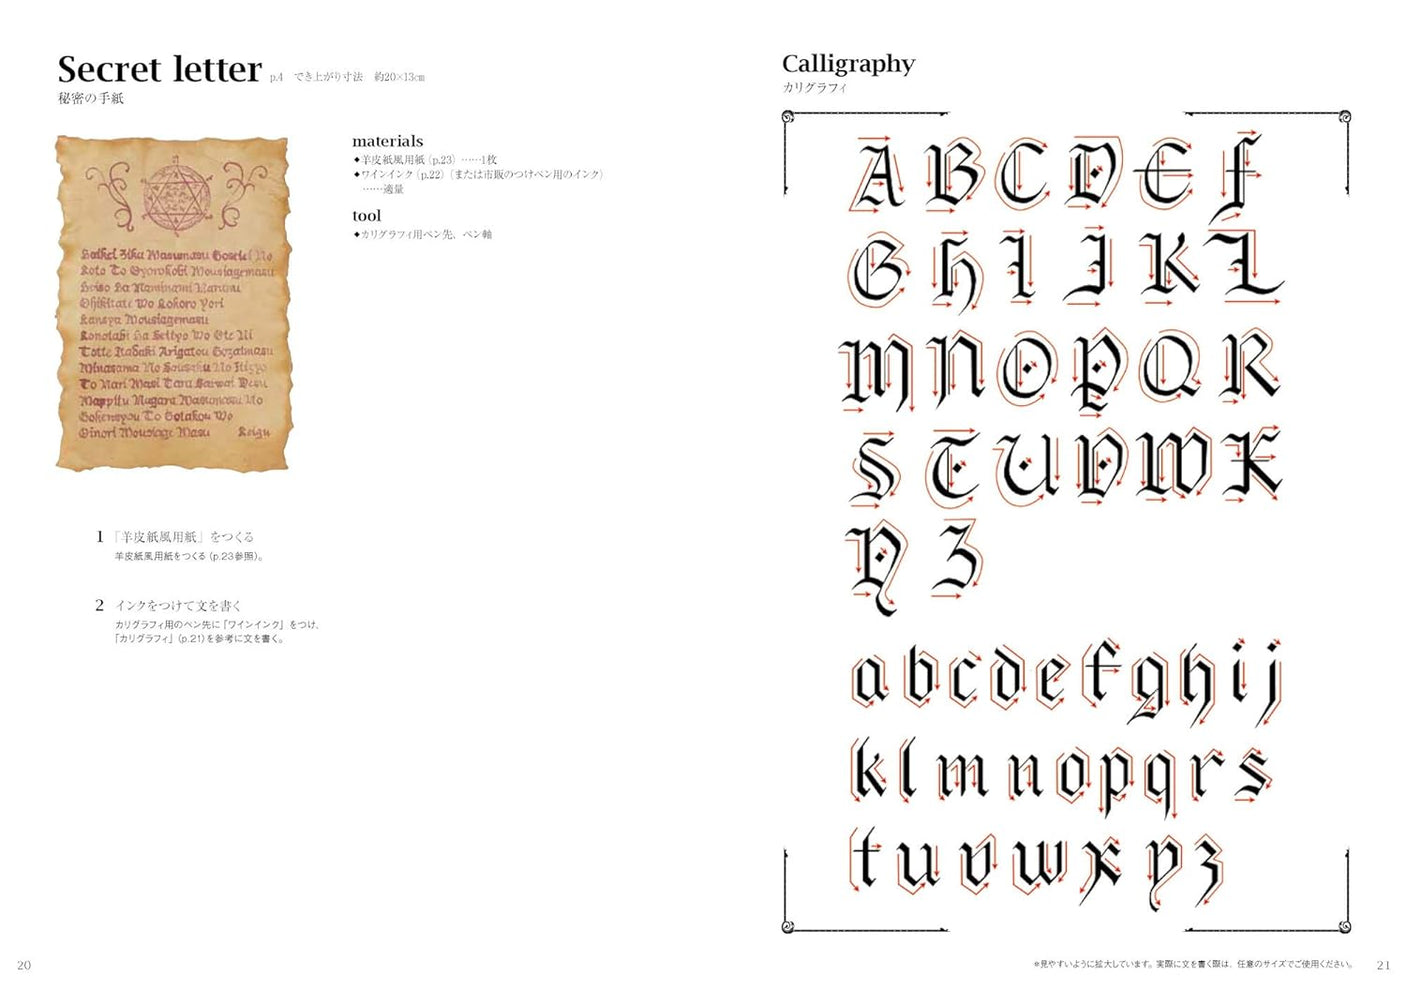 Secret letter p.4 でき上がり寸法 約20×13cm
秘密の手紙
materials
◆羊皮紙風用紙(p.23)……1枚
◆ワインインク(p.22)(または市販のつけペン用のインク)
……適量
tool
◆カリグラフィ用ペン先、ペン軸
Zika Masumasu No
Koto To Oyorokobi Mousiagemasu
Ohikitate Wo Kokoro Yori
Kansya Mousiagemasu
Konotabi Ha Wo Ote Ni
Totte Itadaki Arigatou Gozaimasu
Minasama No Sousaku No
To Nari Masi Tara Saiwai Desu
Nagara No
To Gotakou Wo
Oinori Mousiage Masu Keigu
1 「羊皮紙風用紙」をつくる
羊皮紙風用紙をつくる(p.23参照)。
2 インクをつけて文を書く
カリグラフィ用のペン先に「ワインインク」をつけ、
「カリグラフィ」(p.21)を参考に文を書く。
20
Calligraphy
カリグラフィ
A B C D E f
G h I J K L
M N O P Q R
S T U V W X
Y Z
a b c d e f g h i j
k l m n o p q r s
t u v w x y z
※見やすいように拡大しています。実際に文を書く際は、任意のサイズでご使用ください。
21